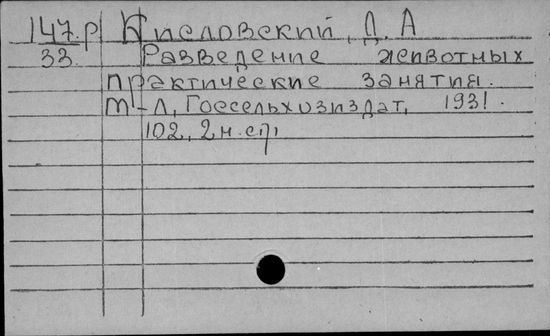 147.р Кисловский, Д. А
33. Разведение животных
практические занятия.
М-Л, Госсельхозиздат, 1931.
102, 2н.ст,